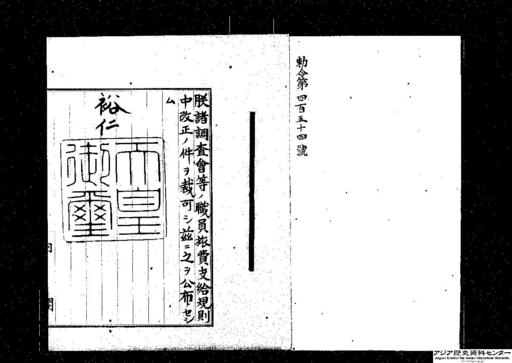 勅令第四百五十四號
朕諸調査會等ノ職員旅費支給規則
中改正ノ件ヲ裁可シ茲ニ之ヲ公布セシ
ム
裕仁
天皇
御璽
内閣
アジア歴史資料センター
Japan Center for Asian Historical Records